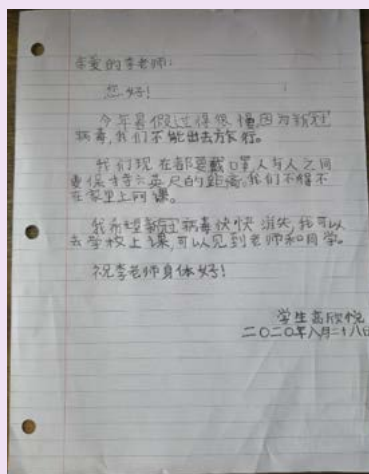 亲爱的李老师:
您好!
今年暑假过得很慢因为新冠
病毒,我们不能出去旅行。
我们现在都要戴口罩人与人之间
要保持六英尺的距离。我们不得不
在家里上网课。
我希望新冠病毒快快消失,我可以
去学校上课,可以见到老师和同学。
祝李老师身体好!
学生高欣悦
二〇二〇年八月二十八日